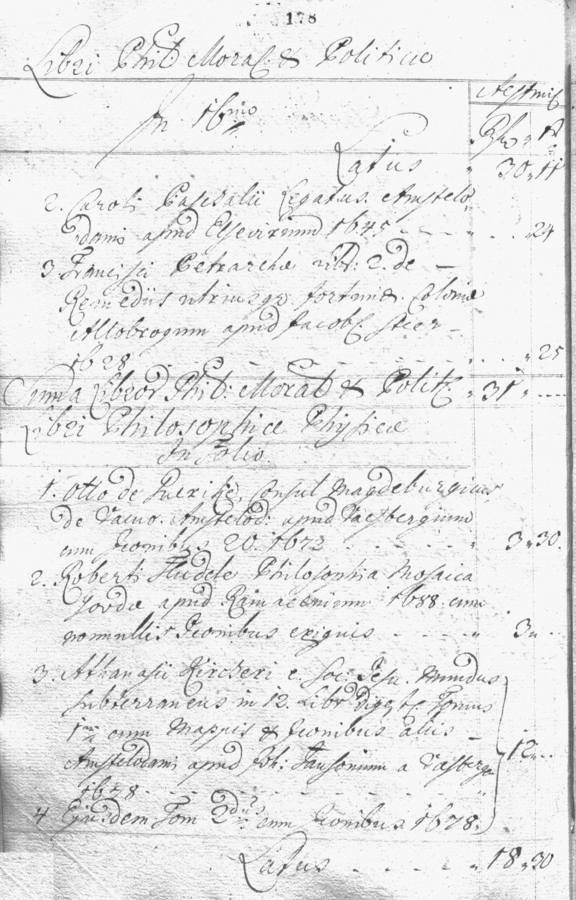 178
Libri Phil: Moral: & Politicæ
Aestmis
In 16mo
Latus 30 11
2. Caroli Paschalii Legatus. Amstelo
dami apud Elsevirium 1645 - - - 24
3 Francisci Petrarchæ libr: 2. de -
Remediis utriusqe. fortunæ. Coloniæ
Allobrogum apud Jacob: Steer -
1628 - - - 25
Suma Libror Phil: Moral & Politic 31
Libri Philosophiæ Physicæ
In Folio
1. Otto de Guerike, Consul Magdeburgicus
de Vacuo. Amstelod: apud Vaesbergium
cum Iconibus 20. 1672 - - - 3 30
2. Roberti Fludele Philosophia Mosaica
Goudæ apud Rammazenium 1688 cum
nonnullis Iconibus exiguis - - - 3
3 Athanasii Kircheri e. Soc: Jesu. Mundus
Subterraneus in 12. Libr Digest: Tomus
1mus cum Mappis & Iconibus aliis -
Amstelodami apud Joh: Jansonium a Vasberge 12
1678 - - -
4 Ejusdem Tom 2dus cum Iconibus 1678.
Latus - - - 18 30